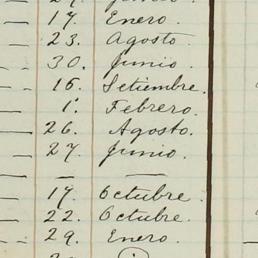 17. Enero.
23. Agosto.
30. Junio.
16. Setiembre.
1. Febrero.
26. Agosto.
27. Junio.
17. Octubre.
22. Octubre.
29. Enero.